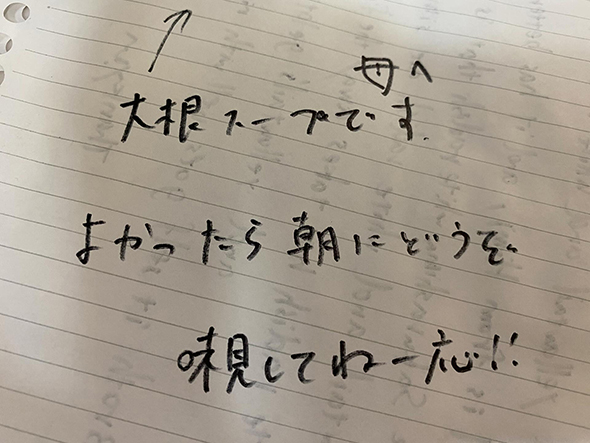 母へ
大根スープです。
よかったら朝にどうぞ。
味見してね一応!!